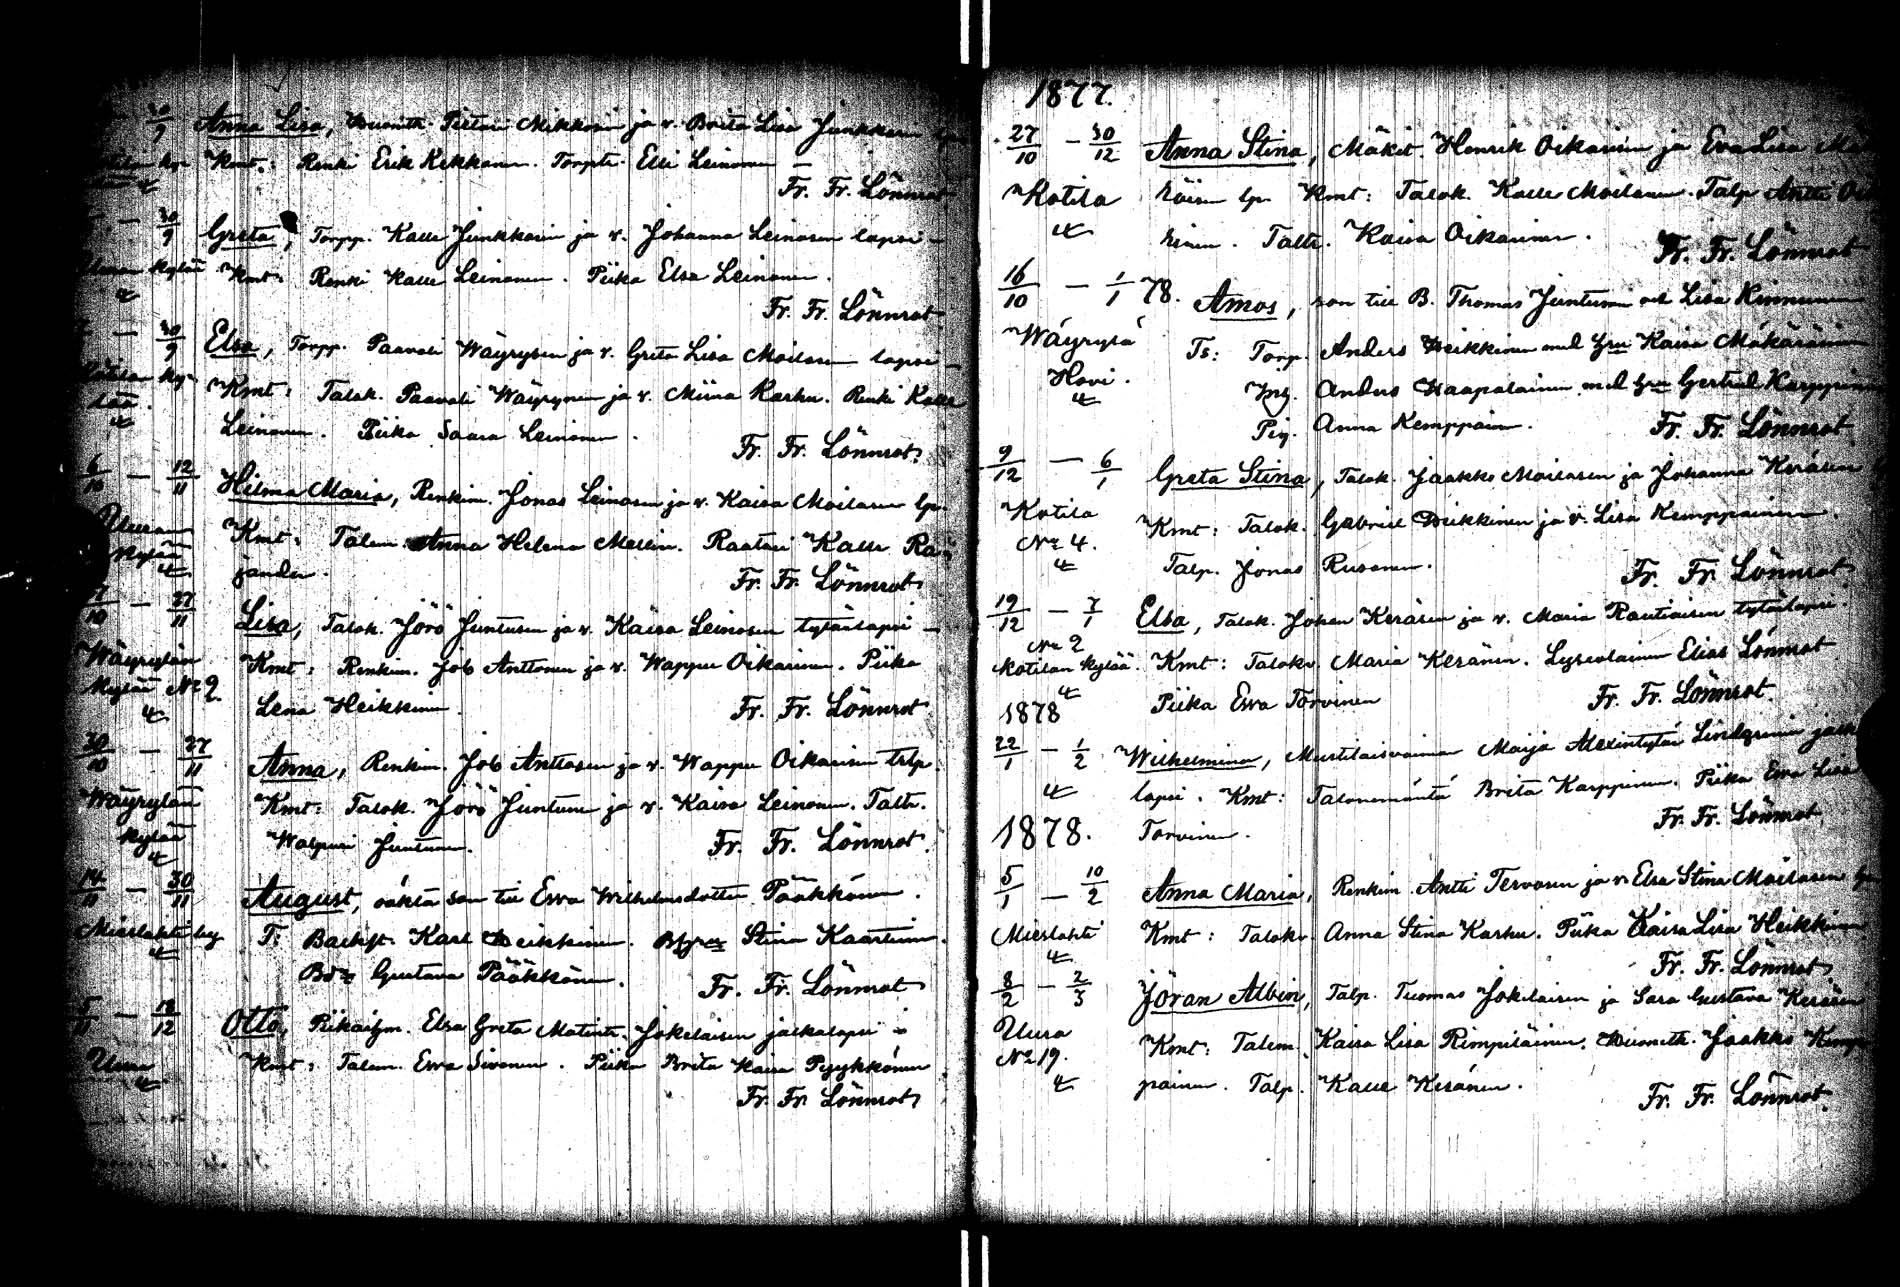 30/9 Anna Lisa, Huoneth. Petteri Mikkosen ja v. Brita Lisa Junkkarin
Kmt: Renki Erik Kekkonen. Torptr. Elli Leinonen —
Fr. Fr. Lönnrot
— 30/9 Greta, Torpp. Kalle Junkkarin ja v. Johanna Leinosen lapsi —
Uuran kylää Kmt: Renki Kalle Leinonen. Piika Elsa Leinonen.
4
Fr. Fr. Lönnrot
— 30/9 Elsa, Torpp. Paavali Wäyrysen ja v. Greta Lisa Moilasen lapsi —
Kmt: Talok. Paavali Wäyrynen ja v. Miina Karhu. Renki Kalle
4 Leinonen. Piika Saara Leinonen.
Fr. Fr. Lönnrot
6/10 — 12/11 Hilma Maria, Renkim. Jonas Leinosen ja v. Kaisa Moilasen lps.
Uuran kylää Kmt: Talem. Anna Helena Mellin. Raatari Kalle Ra-
4 jander.
Fr. Fr. Lönnrot
7/10 — 27/11 Lisa, Talok. Jörö Juntusen ja v. Kaisa Leinosen tytärlapsi —
Wäyrylän Kmt: Renkim. Job Anttonen ja v. Wappu Oikarinen. Piika
kylää No 9 Lena Heikkinen
4 Fr. Fr. Lönnrot
30/10 — 27/11 Anna, Renkim. Job Anttosen ja v. Wappu Oikarisen trlp.
Wäyrylän Kmt: Talok. Jörö Juntunen ja v. Kaisa Leinonen. Taltr.
kylää Walpuri Juntunen.
4 Fr. Fr. Lönnrot.
14/11 — 30/11 August, oäkta son till Ewa Wilhelmsdotter Pääkkönen.
Mieslahti by T: Backst. Karl Heikkinen. Stina Kaartinen.
4 Gustava Pääkkönen.
Fr. Fr. Lönnrot
5/11 — 18/12 Otto, Elsa Greta Matintr. Jokelaisen jalkalapsi
Uura Kmt: Talem. Ewa Sivonen. Piika Brita Kaisa Pyykkönen
4 Fr. Fr. Lönnrot
1877.
27/10 — 30/12 Anna Stina, Mäkit. Henrik Oikarisen ja Eva Lisa Mä
Kotila räisen lps. Kmt: Talok. Kalle Moilanen. Talp. Antti Oika
4 rinen. Taltr. Kaisa Oikarinen.
Fr. Fr. Lönnrot
16/10 — 1/1 78. Amos, son till B. Thomas Juntunen och Lisa Kinnunen
Wäyrylä Ts: Torp. Anders Heikkinen med hru Kaisa Mäkäräinen
Hovi. Yng. Anders Haapalainen med hru Gertrud Karppinen
4 Pig. Anna Kemppainen.
Fr. Fr. Lönnrot.
9/12 — 6/1 Greta Stina, Talok. Jaakko Moilasen ja Johanna Keräsen
Kotila Kmt: Talok. Gabriel Heikkinen ja v. Lisa Kemppainen.
No 4. Talp. Jonas Rusanen.
4 Fr. Fr. Lönnrot.
19/12 — 7/1 Elsa, Talok. Johan Keräsen ja v. Maria Rautiaisen tytärlapsi.
No 2
Kotilan kylää. Kmt: Talokv. Maria Keränen. Lyseolainen Elias Lönnrot
4 Piika Ewa Torvinen
Fr. Fr. Lönnrot
1878
22/1 — 1/2 Wilhelmina, Mustilaisvaimon Maija Alexintytär Lindqrenin jalk
4 lapsi. Kmt: Talonemäntä Brita Karppinen. Piika Ewa Lisa
Torvinen.
Fr. Fr. Lönnrot
1878.
5/1 — 10/2 Anna Maria, Renkim. Antti Tervosen ja v. Elsa Stina Moilasen lps
Mieslahti Kmt: Talokv. Anna Stina Karhu. Piika Kaisa Lisa Heikkinen
4 Fr. Fr. Lönnrot
8/2 — 2/3 Jöran Albin, Talp. Tuomas Jokelaisen ja Sara Gustava Keräsen
Uura Kmt: Talem. Kaisa Lisa Rimpiläinen. Huoneth. Jaakko Kemp
No 19. painen. Talp. Kalle Keränen.
4 Fr. Fr. Lönnrot.